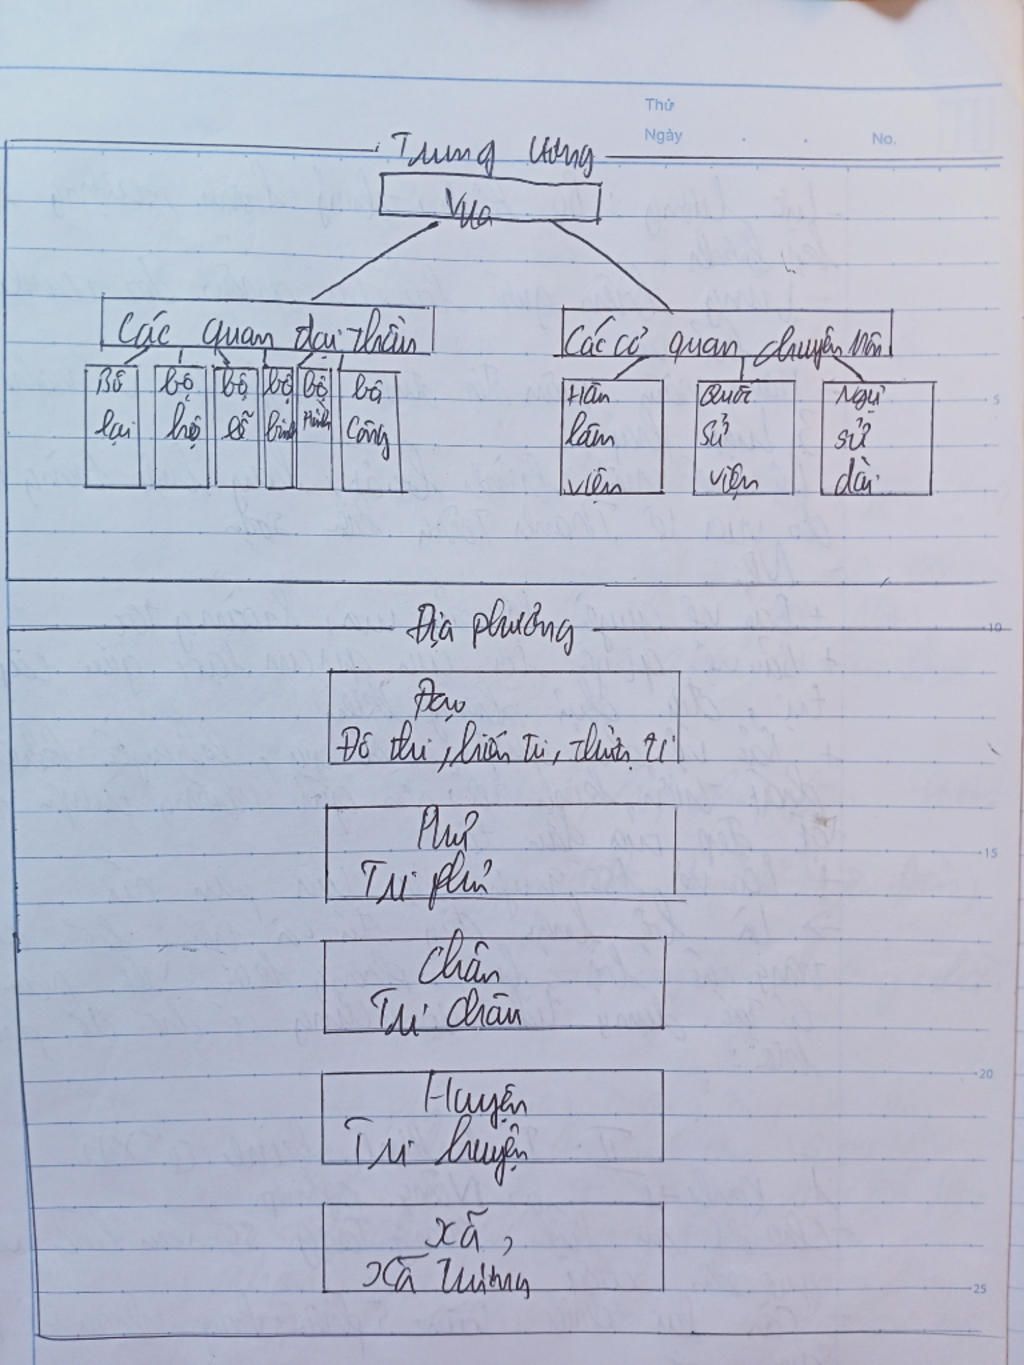 Thứ
Ngày . . No.
Trung ương
Vua
Các quan đại thần
Các cơ quan chuyên môn
Bộ lại
bộ hộ
bộ lễ
bộ binh
bộ Hình
bộ Công
Hàn lâm viện
Quốc sử viện
Ngự sử đài
Địa phương
5
10
Đạo
Đô ti, hiến ti, thừa ti
Phủ
Tri phủ
15
Châu
Tri châu
Huyện
Tri huyện
20
Xã,
Xã trưởng
25